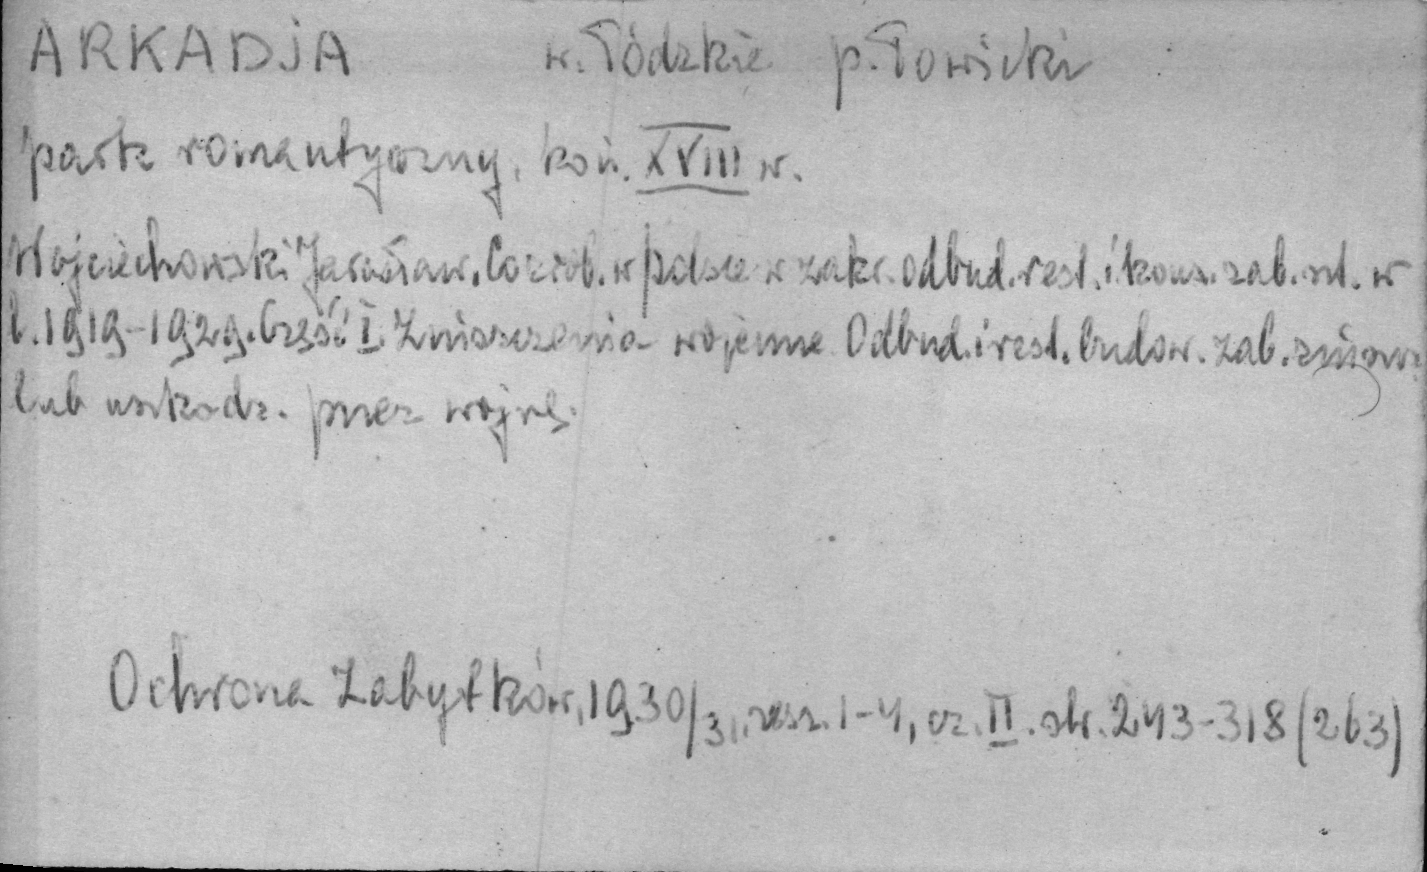 ARKADJA w. Łódzkie p. Łowicki
park romantyczny, koń. XVIII w.
Wojciechowski Jarosław. Co zrob. w Polsce w zakr. odbud. rest. i kons. zab. szt. w
l. 1919-1929. Część I. Zniszczenia wojenne Odbud. i rest. budow. zab. zniszcz
lub uszkodz. przez wojnę.
Ochrona Zabytków, 1930/31, zesz. 1-4, cz. II. str. 243-318 (263)